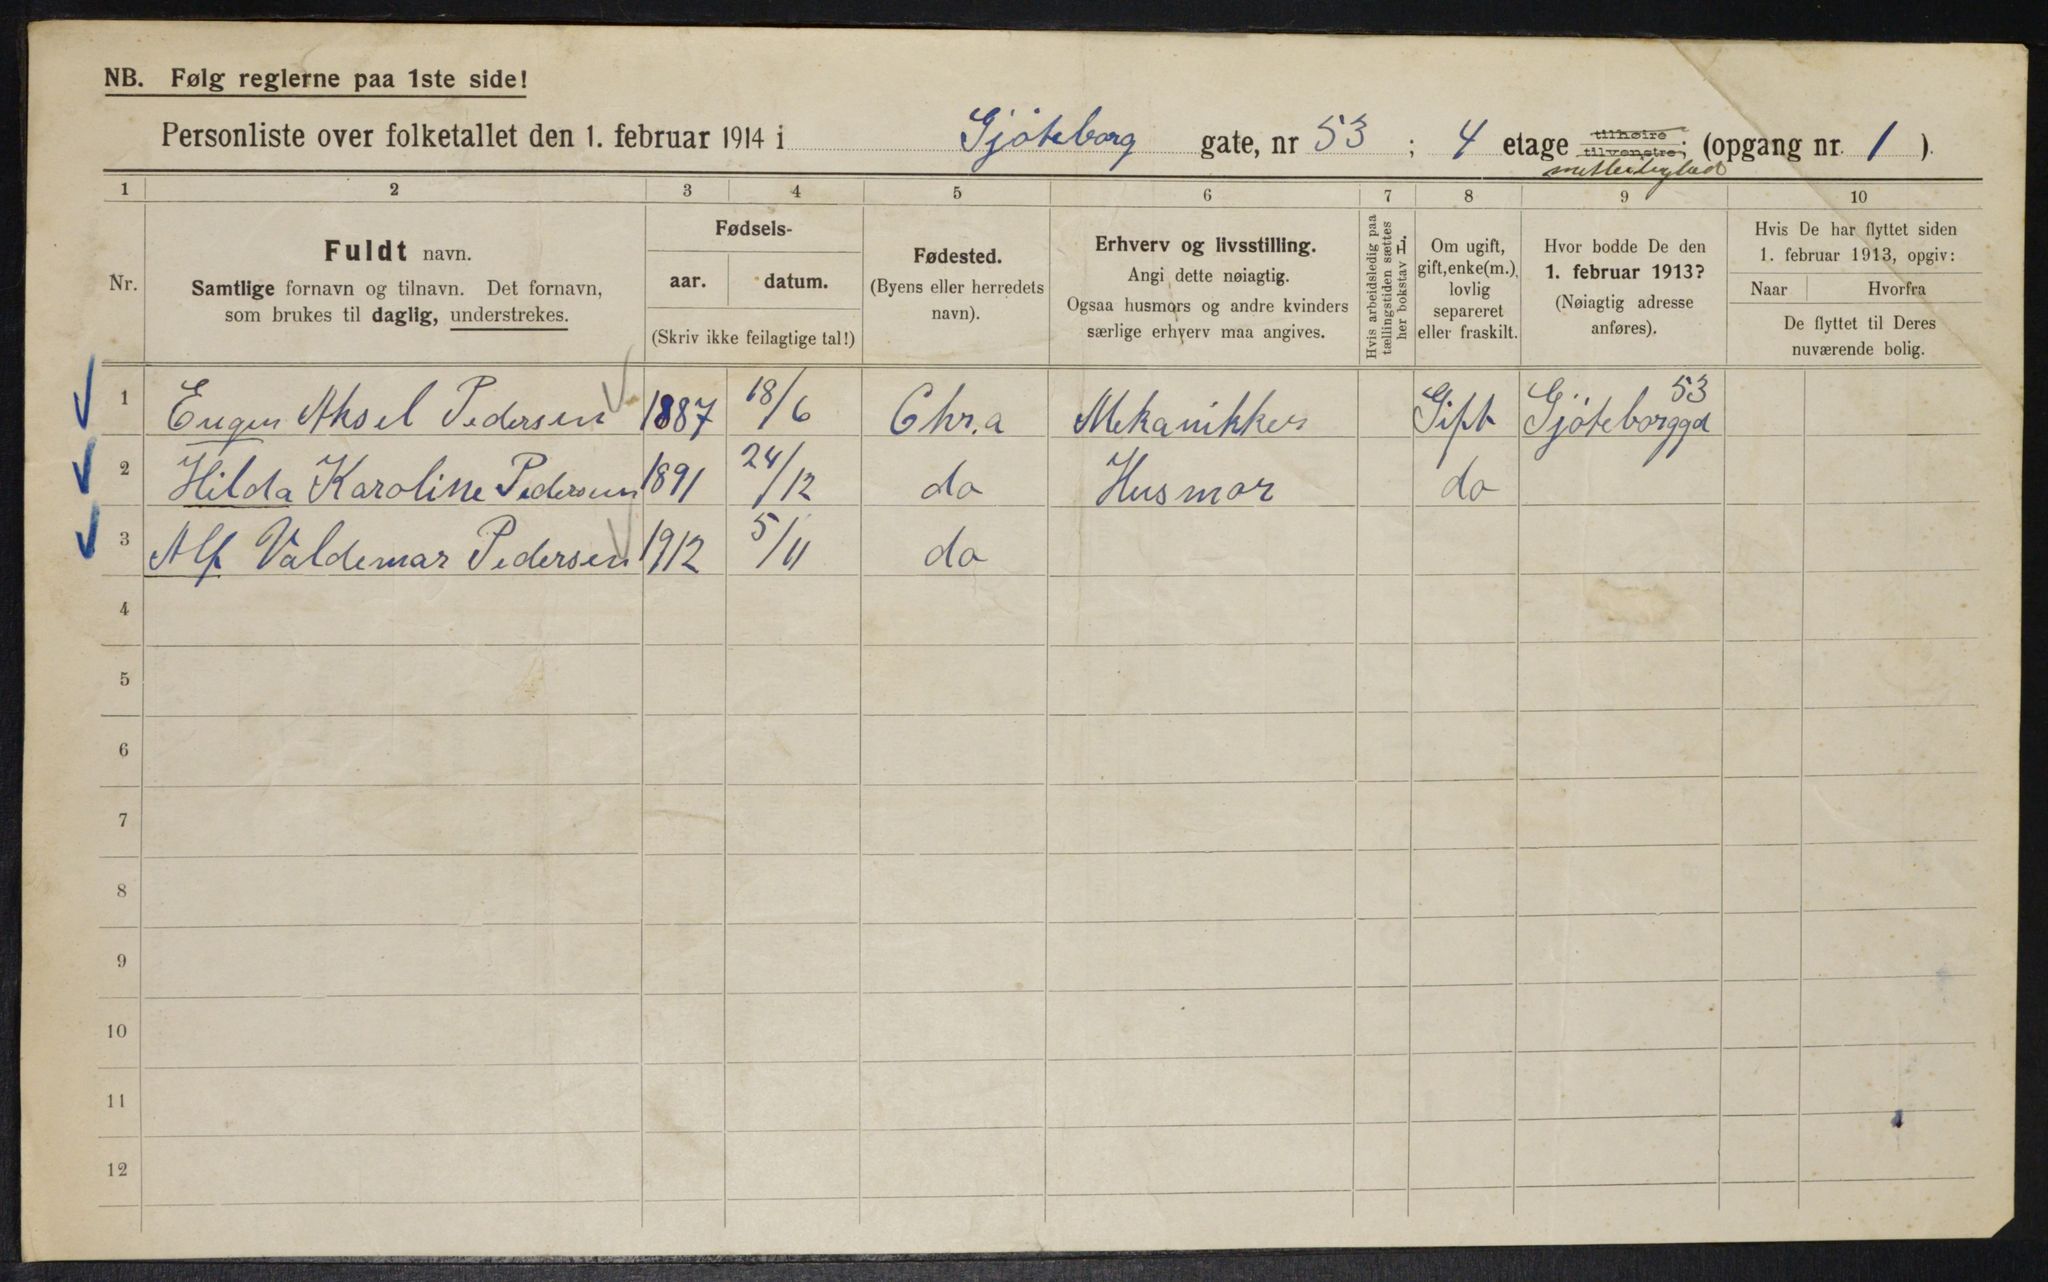 NB. Følg reglerne paa 1ste side!
Personliste over folketallet den 1. februar 1914 i Gjöteborg gate, nr 53 ; 4 etage tilhøire tilvenstre; (opgang nr. 1 ).
1 2 3 4 5 6 7 8 9 10
Nr.
Fuldt navn.
Samtlige fornavn og tilnavn. Det fornavn,
som brukes til daglig, understrekes.
Fødsels-
aar. datum.
(Skriv ikke feilagtige tal!)
Fødested.
(Byens eller herredets
navn).
Erhverv og livsstilling.
Angi dette nøiagtig.
Ogsaa husmors og andre kvinders
særlige erhverv maa angives.
Hvis arbeidsledig paa
tællingstiden sættes
her bokstav L.
Om ugift,
gift, enke(m.),
lovlig
separeret
eller fraskilt.
Hvor bodde De den
1. februar 1913?
(Nøiagtig adresse
anføres).
Hvis De har flyttet siden
1. februar 1913, opgiv:
Naar Hvorfra
De flyttet til Deres
nuværende bolig.
1 Eugen Aksel Pedersen 1887 18/6 Chr.a Mekanikker Gift Gjöteborggd 53
2 Hilda Karoline Pedersen 1891 24/12 do Husmor do
3 Alf Valdemar Pedersen 1912 5/11 do
4
5
6
7
8
9
10
11
12